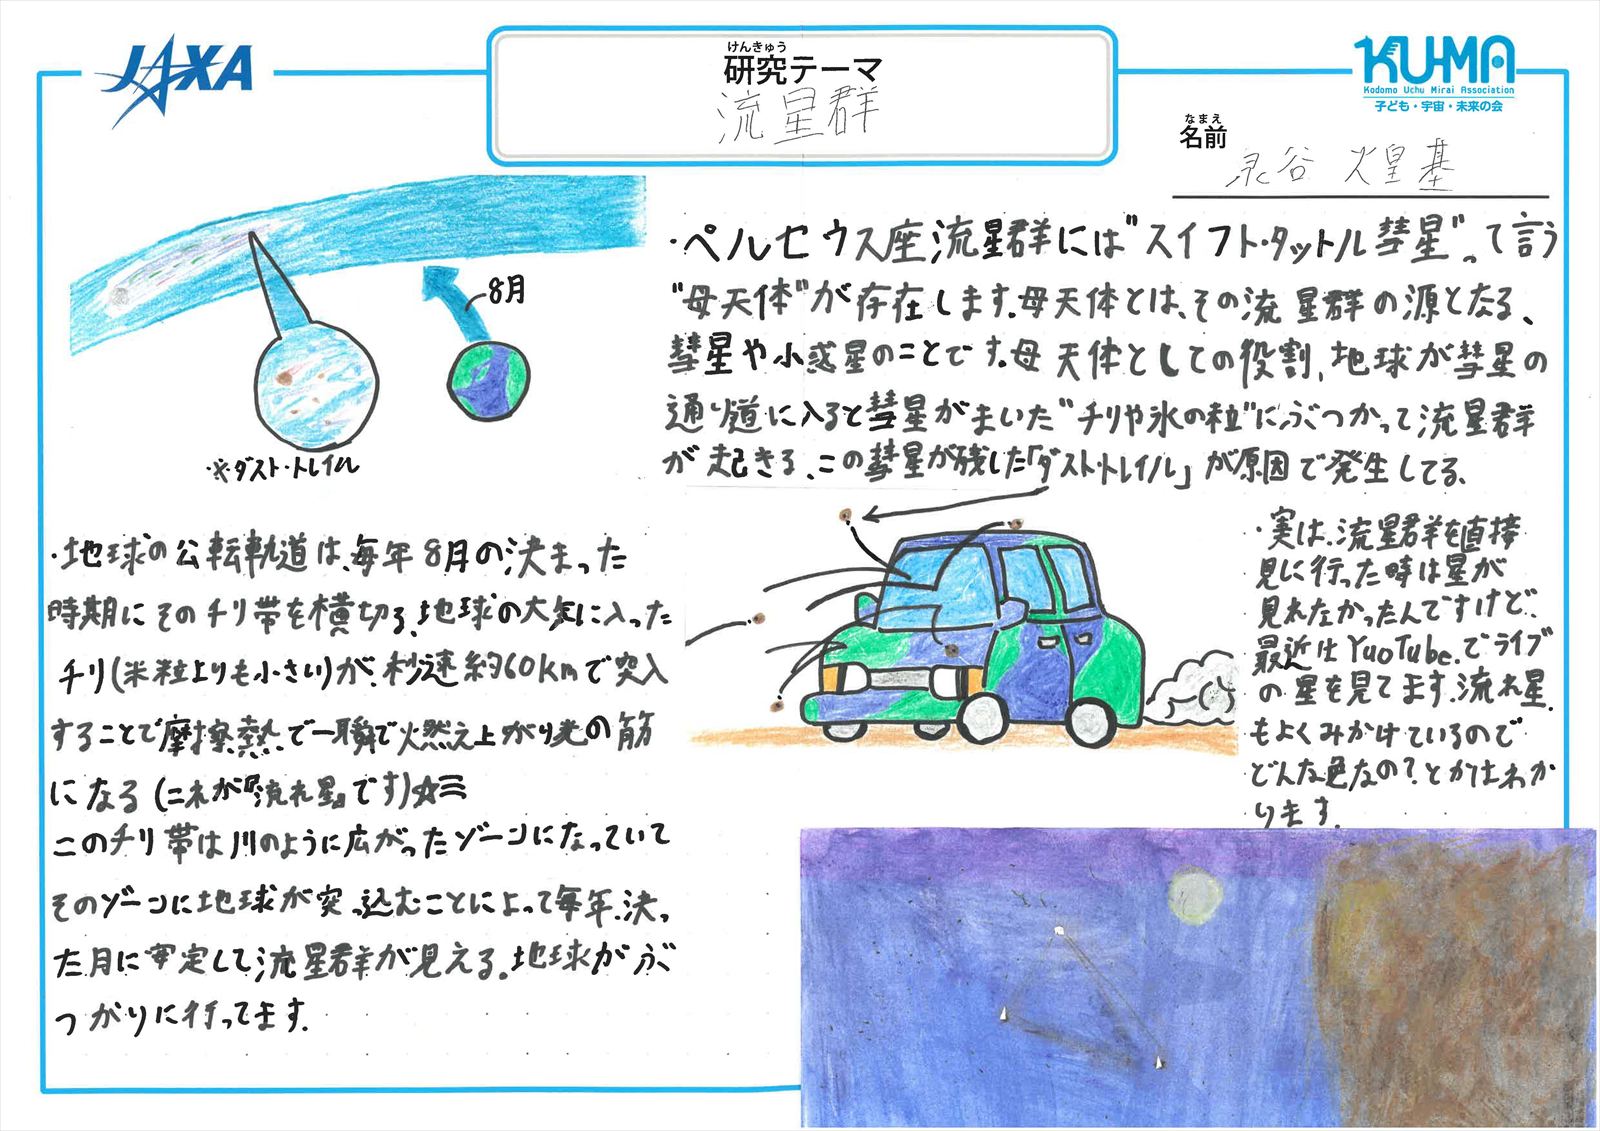 JAXA
けんきゅう
研究テーマ
流星群
KU-MA
Kodomo Uchu Mirai Association
子ども・宇宙・未来の会
なまえ
名前
泉谷 煌基
8月
※ダスト・トレイル
・ペルセウス座流星群には"スイフト・タットル彗星"って言う
"母天体"が存在します。母天体とは、その流星群の源となる、
彗星や小惑星のことです。母天体としての役割、地球が彗星の
通り道に入ると彗星がまいた"チリや氷の粒"にぶつかって流星群
が起きる、この彗星が残した「ダスト・トレイル」が原因で発生してる。
・地球の公転軌道は、毎年8月の決まった
時期にそのチリ帯を横切る、地球の大気に入った
チリ(米粒よりも小さい)が、秒速約60kmで突入
することで摩擦熱で一瞬で火燃え上がり光の筋
になる(これが『流れ星』です)☆三
このチリ帯は川のように広がったゾーンになっていて
そのゾーンに地球が突っ込むことによって毎年、決っ
た月に安定して流星群が見える。地球がぶ
つかりに行ってます。
・実は、流星群を直接
見に行った時は星が
見れなかったんですけど、
最近はYuoTube.でライブ
の星を見てます。流れ星
もよくみかけているので
どんな色なの?とかはわか
ります。